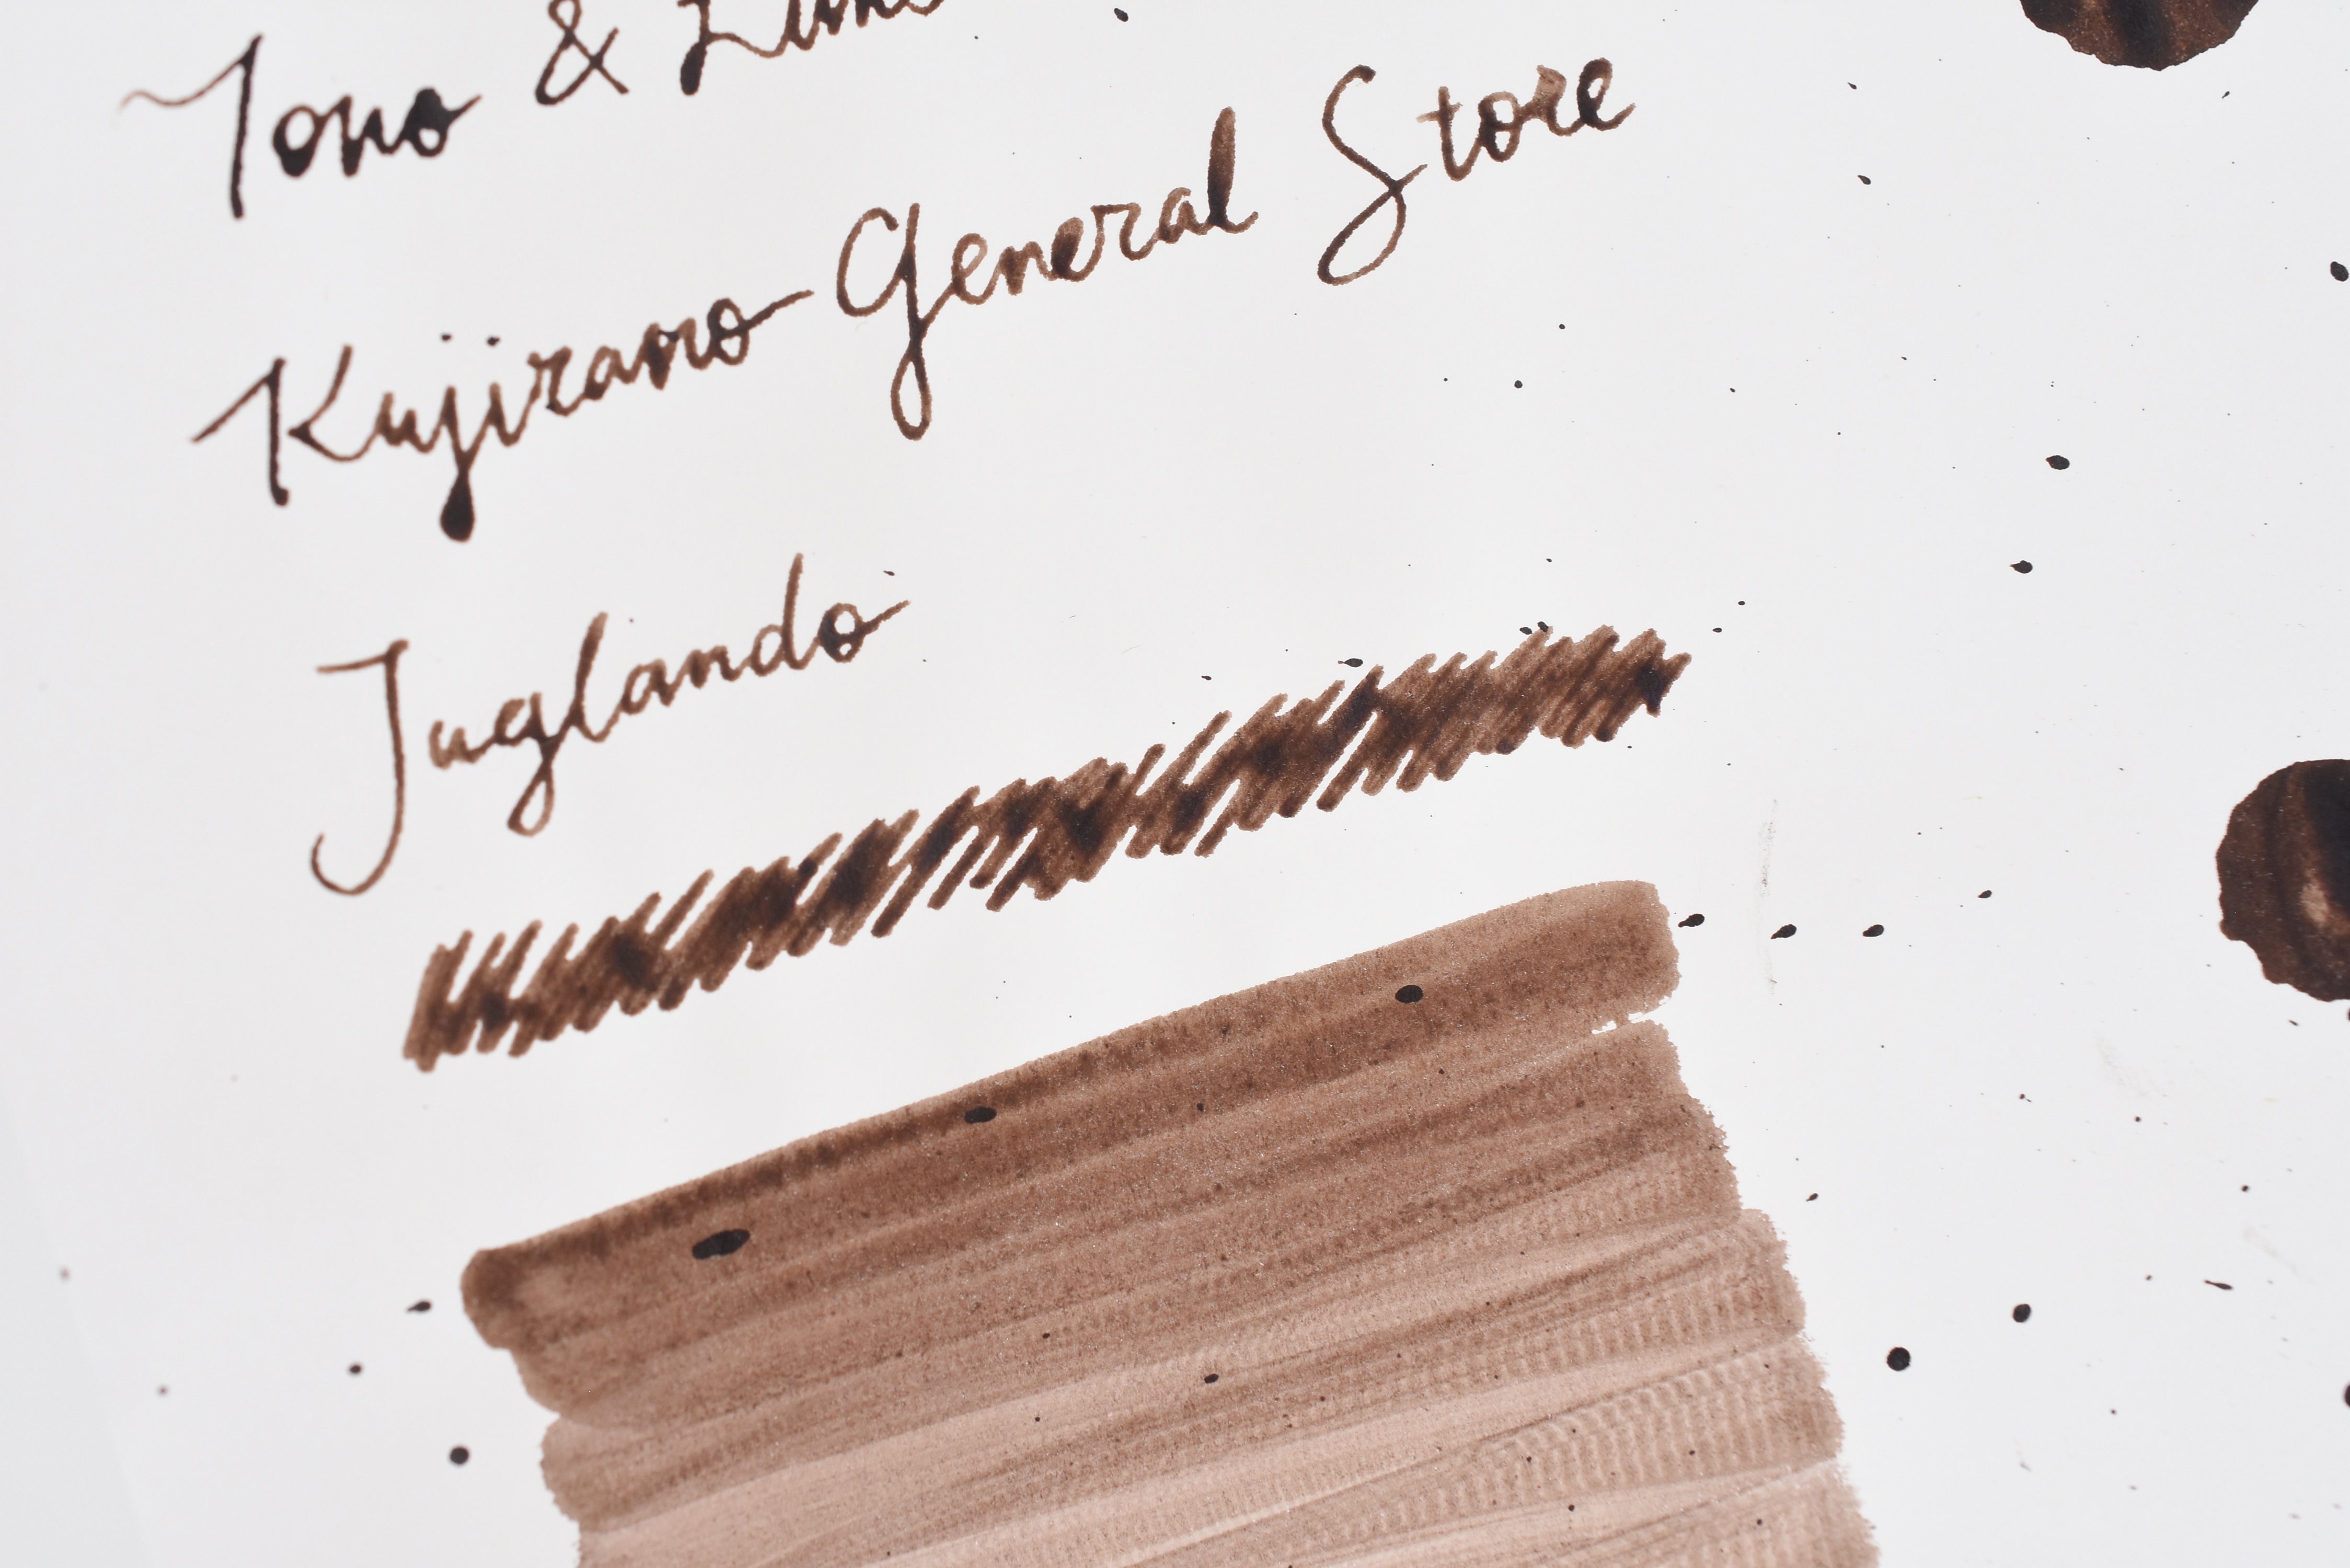 Tono & Lims
Kujirano General Store
Juglando